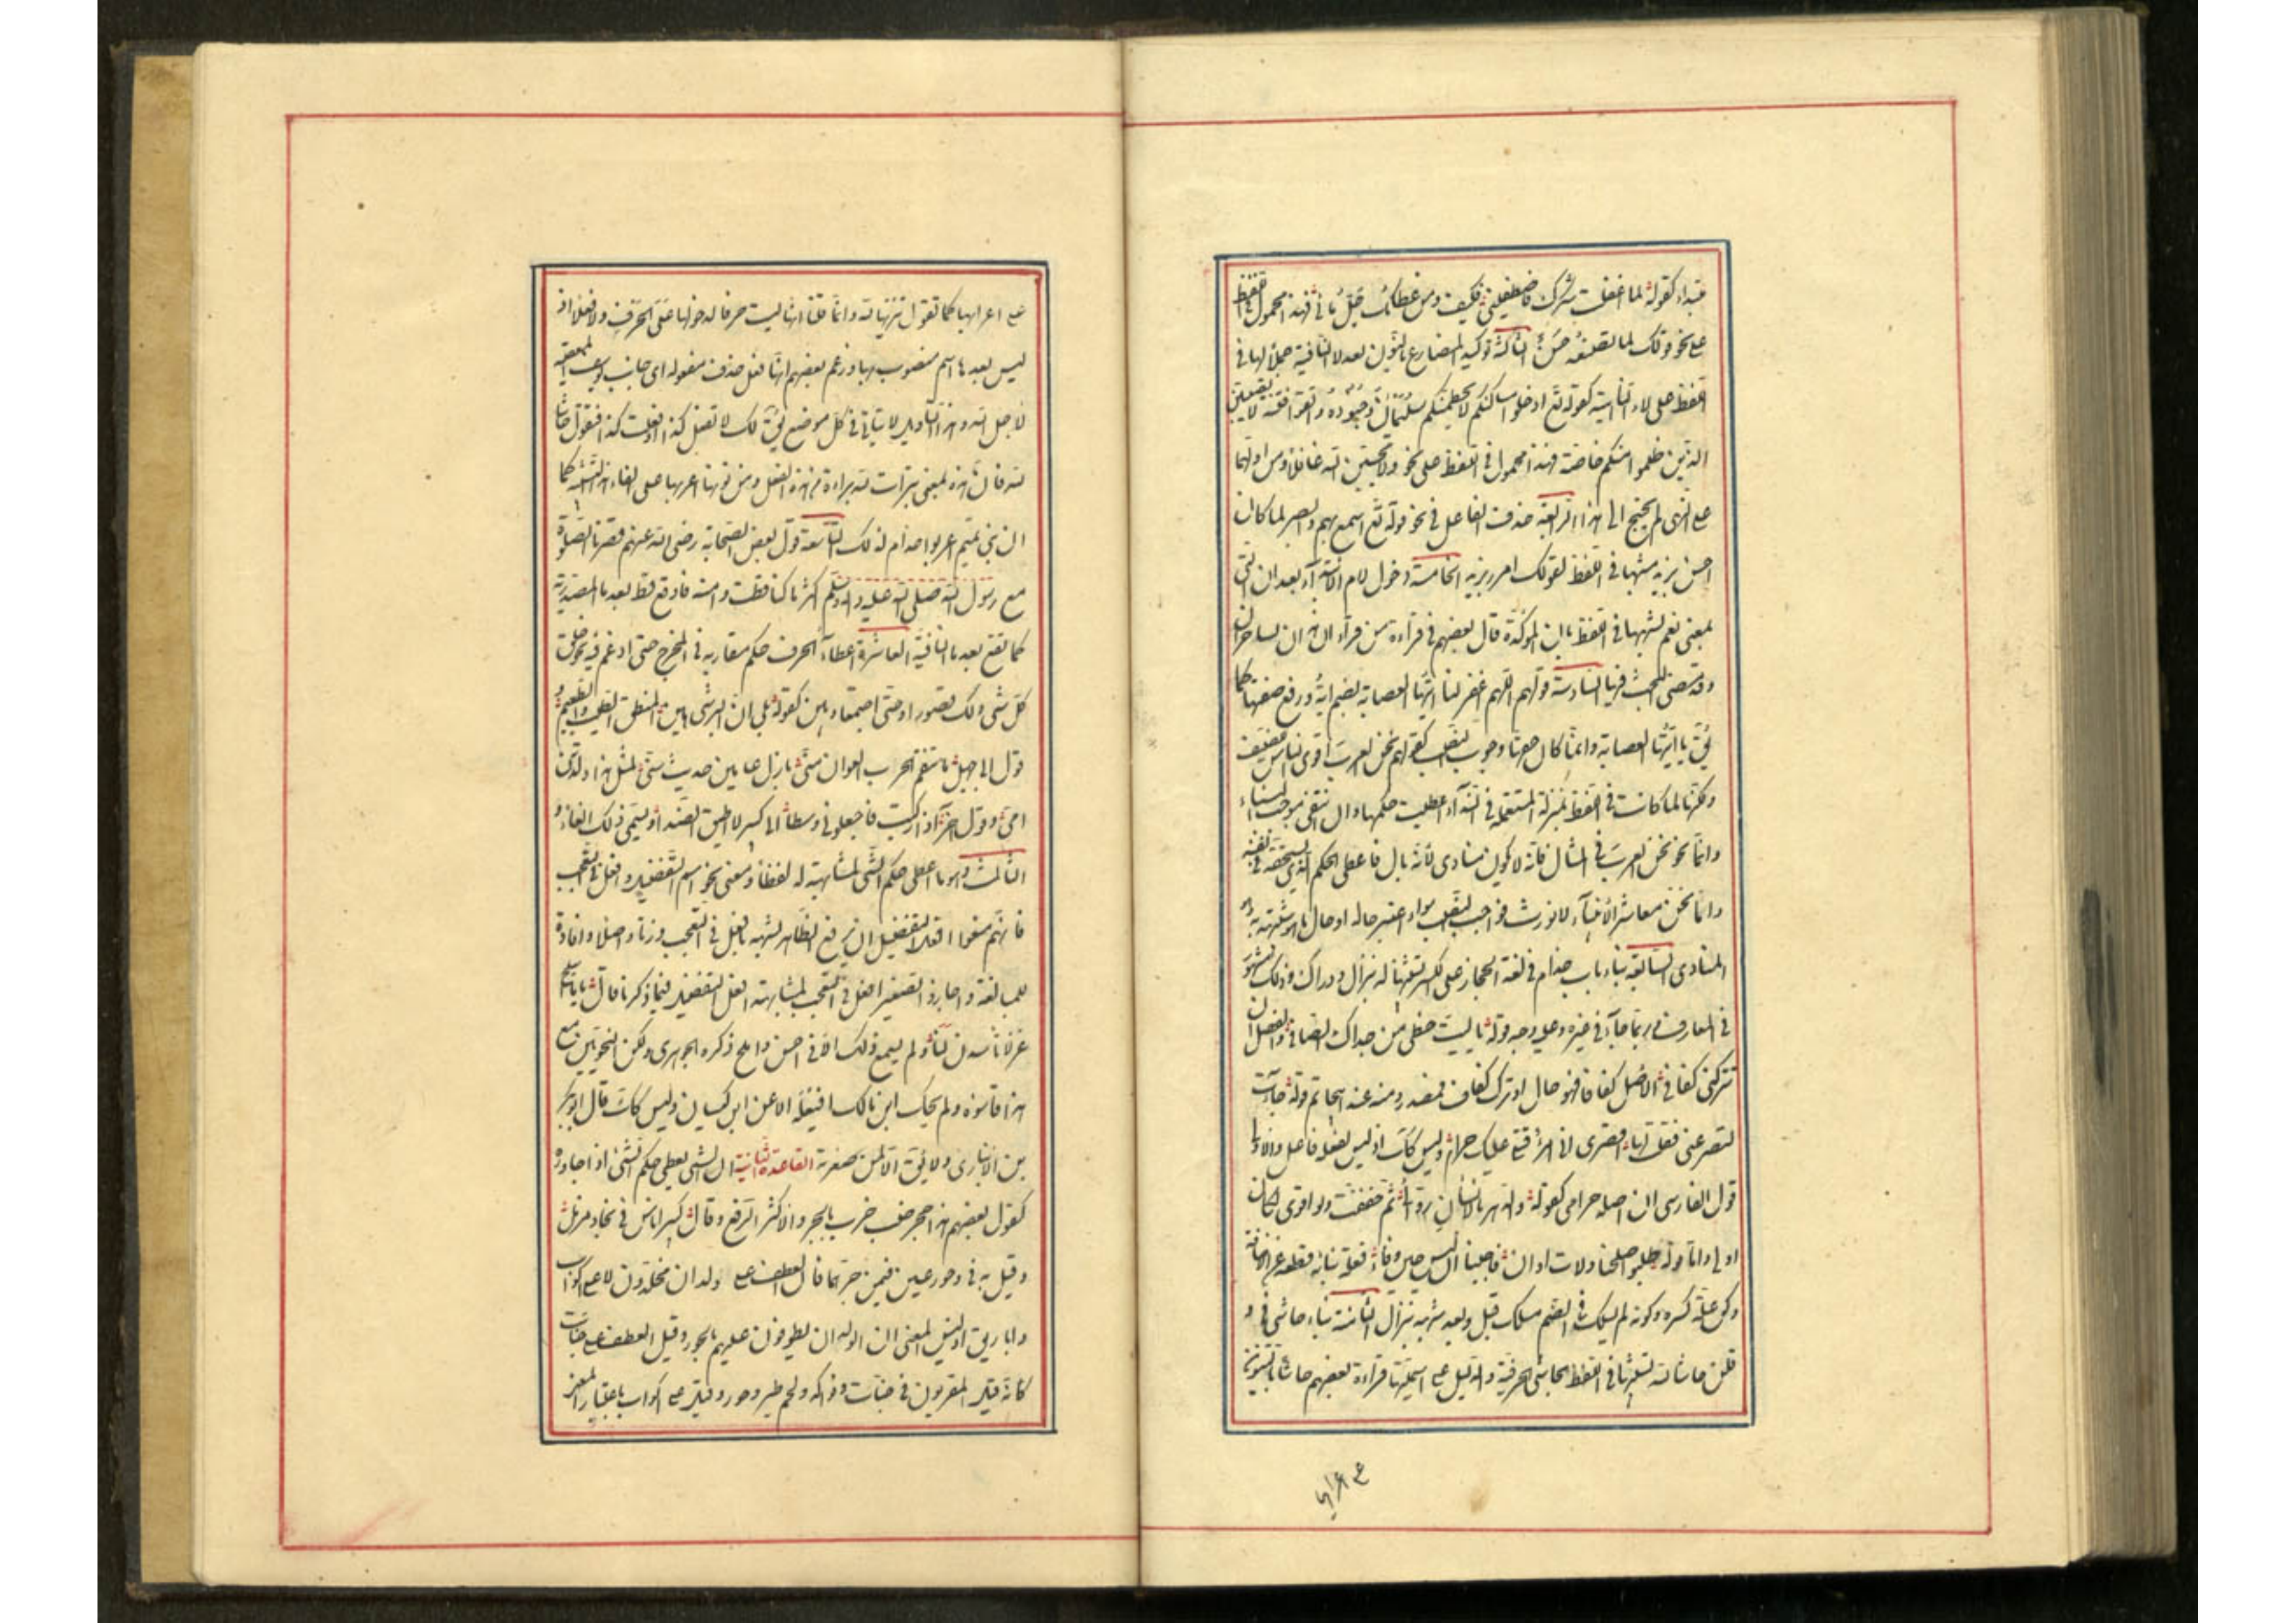 مبتداء كقوله لما اغفلت شكرك فاصطنعني فكيف ومن عطائك جلّ مالي فهذا محمول في اللفظ
على نحو قولك لما تصنعه حسن الثالثة توكيد المضارع بالنون بعد لا النافية حملا لها في
اللفظ على لاء الناهية كقوله تع ادخلوا مساكنكم لا يحطمنكم سليمان وجنوده واتقوا فتنة لا تصيبن
الذين ظلموا منكم خاصة فهذا محمول في اللفظ على نحو ولا تحسبن الله غافلا ومن اولهما
على النهي لم يحتج الى هذا الرابعة حذف الفاعل في نحو قوله تع اسمع بهم وابصر لما كان
احسن بزيد مشبها في اللفظ لقولك امرر بزيد الخامسة دخول لام الابتداء بعد ان التي
بمعنى نعم لشبهها في اللفظ بان المؤكدة قال بعضهم في قراءة من قرأ ان هذان لساحران
وقد مضى البحث فيها السادسة قولهم اللهم اغفر لنا ايتها العصابة بضم اية ورفع صفتها كما
يق يا ايتها العصابة وانما كان حقها وجوب النصب كقولهم نحن العرب اقرى الناس للضيف
ولكنها لما كانت في اللفظ بمنزلة المستعملة في النداء اعطيت حكمها وان انتفى موجب البناء
وانما نحو نحن العرب في المثال فانه لا يكون منادى لانه بال فاعطي الحكم الذي يستحقه في نفسه
واما نحن معاشر الانبياء لا نورث فواجب النصب سواء اعتبر حاله او حال ما هو مشبهه به وهو
المنادى السابعة بناء باب حذام في لغة الحجاز على الكسر تشبيها له بنزال ودراك وذلك مشهور
في المعارف وربما جاء في غيره وعليه وجه قوله يا ليت حظي من جداك الصافي والفضل ان
تتركني كفاف الاصل كفافا فهو حال او ترك كفاف فمصدر ومنه عند ابي حاتم قوله جاءت
لتصرعني فقلت لها اقصري اني امرؤ قتلي عليك حرام وليس كك اذ ليس لفعله فاعل والاولى
قول الفارسي ان اصله حرامي كقوله والدهر بالانسان دواري ثم خففت ولو اقوى لكان
اولى واما قوله طلبوا صلحنا ولات اوان فاجبنا ان ليس حين بقاء فعلة بنائه قطعه عن الاضافة
ولكن علة كسره وكونه لم يسلك في الضم مسلك قبل وبعد شبهه بنزال الثامنة بناء حاشى في و
قلن حاشا لله لشبهها في اللفظ بحاشى الحرفية والدليل على اسميتها قراءة بعضهم حاشا بالتنوين
على اعرابها
على اعرابها كما تقول تنزيها لله وانما قلنا انها ليست حرفا لدخولها على الحرف ولا فعلا اذ
ليس بعدها اسم منصوب بها وزعم بعضهم انها فعل حذف مفعوله اى جانب يوسف المعصية
لاجل الله وهذا التاويل لا يتاتى في كل موضع يق لك لا تفعل كذا او فعلت كذا فتقول حاشا
لله فان هذه بمعنى تبرأت لله براءة من هذا الفعل ومن نونها اعربها على الغاء هذا الشبه كما
ان بني تميم اعربوا حذام لذلك التاسعة قول بعض الصحابة رضي الله عنهم قصرنا الصلوة
مع رسول الله صلى الله عليه واله وسلم اكثر ما كنا قط وامنه فاوقع قط بعد ما المصدرية
كما تقع بعد ما النافية العاشرة اعطاء الحرف حكم مقاربه في المخرج حتى ادغم فيه نحو خلق
كل شئ ولك قصورا وحتى اجتمعا رويين كقوله بني ان البر شئ هين المنطق الطيب والطعيم و
قول ابي جهل ما تنقم الحرب العوان مني بازل عامين حديث سني لمثل هذا ولدتني
امي وقول اخر اذا ركبت فاجعلوني وسطا اني كبير لا اطيق العندا ويسمى ذلك اكفاء و
الثالث وهو ما اعطي حكم الشئ لمشابهته له لفظا ومعنى نحو اسم التفضيل وافعل في التعجب
فانهم منعوا افعل التفضيل ان يرفع الظاهر لشبهه بافعل في التعجب وزنا واصلا وافادة
للمبالغة واجازوا تصغير افعل في التعجب لمشابهته افعل التفضيل فيما ذكرنا قال ياما اميلح
غزلانا شدن لنا ولم يسمع ذلك الا في احسن واملح ذكره الجوهري ولكن النحويين مع
هذا قاسوه ولم يحك ابن مالك اقتياسه الا عن ابن كيسان وليس كك قال ابو بكر
بن الانباري ولا يق الا لمن صغر سنه القاعدة الثانية ان الشئ يعطى حكم الشئ اذا جاوره
كقول بعضهم هذا حجر ضب خرب بالجر والاكثر الرفع وقال كبير اناس في بجاد مزمل
وقيل به في وحور عين فيمن جرهما فان العطف على ولدان مخلدون لا على اكواب
واباريق اذ ليس المعنى ان الولدان يطوفون عليهم بالحور وقيل العطف على جنات
كانه قيل المقربون في جنات وفاكهة ولحم طير وحور وقيل على اكواب باعتبار المعنى